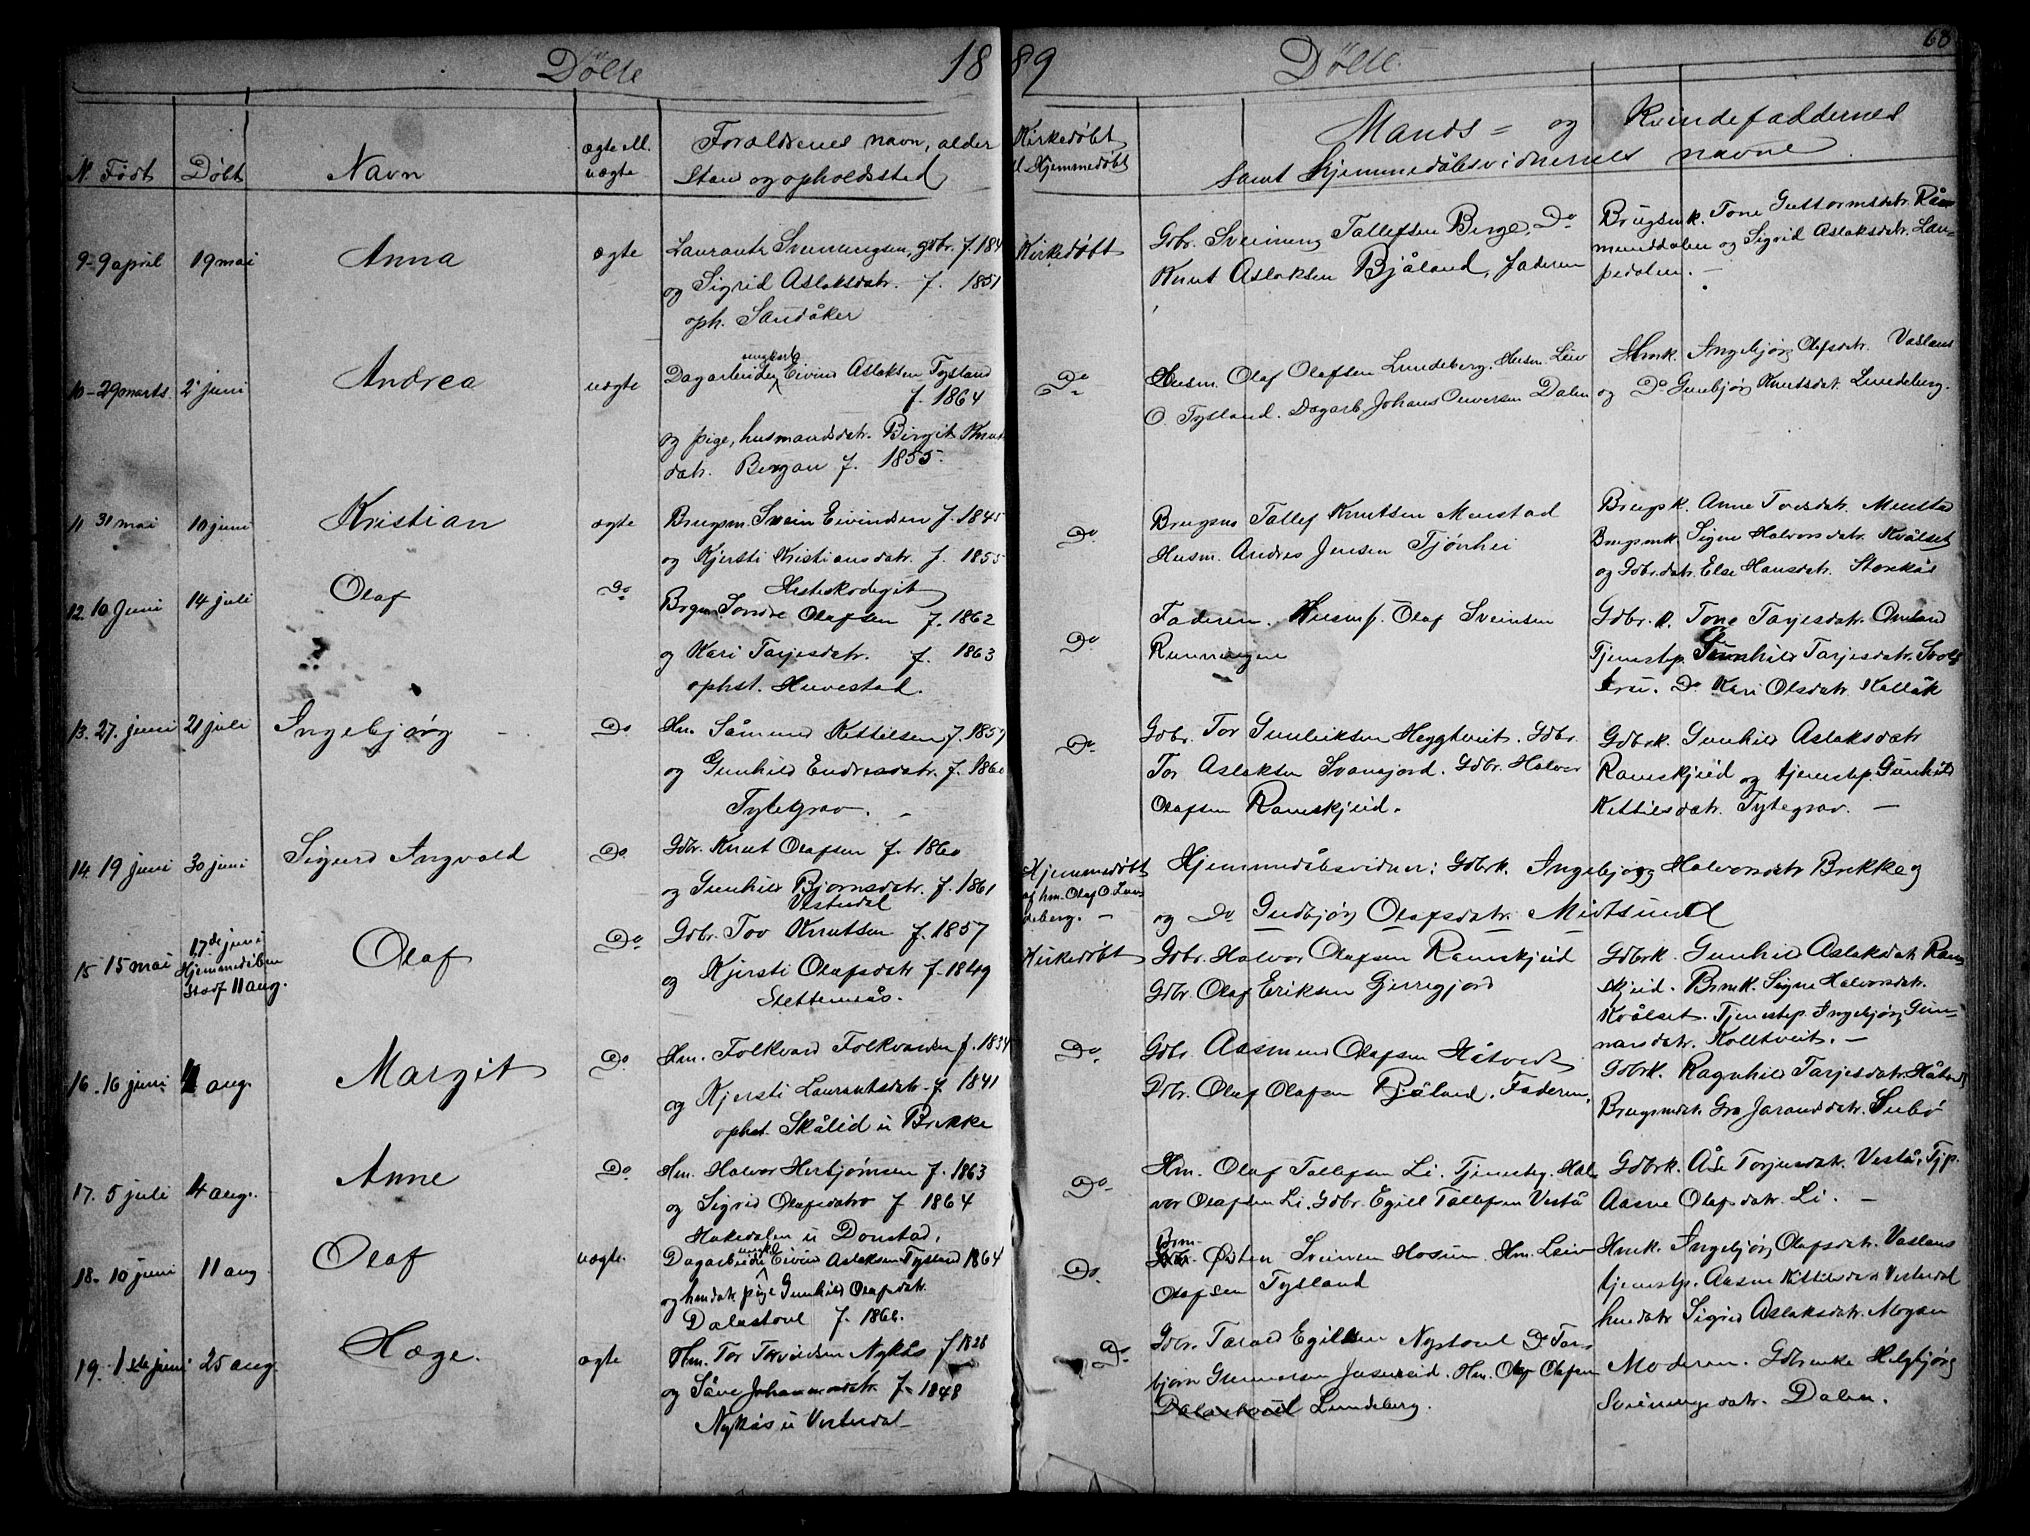 Døbte 1889 Døbte 68
N. Født Døbt Navn ægte ell. uægte Forældrenes navn, alder Stand og opholdssted Kirkedøbt el. Hjemmedøbt Mands- og Kvindefaddernes samt Hjemmedåbsvidnernes navne
9 - 9 april 19 mai Anna ægte Laurants Sveinungsen, gdbr. f. 184
og Sigrid Aslaksdatr. f. 1851
oph. Sandåker
Kirkedøbt
Gdbr. Sveinung Tallefsen Berge, Do
Knut Aslaksen Bjåland, faderen
Brugsmk. Tone Guttormsdatr.
og Sigrid Aslaksdatr. Lau=
pedalen. -
10 - 29 marts 2 juni Andrea uægte Dagarbeider ungkarl Eivind Aslaksen Tysland
f. 1864
og pige, husmandsdatr. Birgit Knuts
datr. Bergan f. 1855.
Do
Husm. Olaf Olafsen Lundeberg. Husm. Leiv
O. Tysland. Dagarb. Johans Dalen
Hmk. Ingebjørg Olafsdatr.
og Do Gunbjørg Knutsdat. Lundeberg.
11 31 mai 10 juni Kristian ægte Brugsm. Svein Eivindsen f. 1845
og Kjersti Kristiansdatr. f. 1855
Do
Brugsm Tallef Knutsen Menstad
Husm. Andres Jensen Tjønhei
Brugsk. Anne Toresdatr. Menstad
Brugsmk. Signe Halvorsdatr. Kvålset
og Gdbr.datr. Else Hansdatr.
12. 10 Juni 14 juli Olaf Do
Sondre Olafsen f. 1862
og Kari Tarjesdatr. f. 1863
ophst. Huvestad.
Do
Faderen. Olaf Sveinsen
Runningen
Gdbr. k. Tone Tarjesdatr. Omland
Tjenestep. Gunhild Tarjesdatr.
Do Kari Olsdatr.
13. 27. juni 21 juli Ingebjørg Do Hm. Såmund Kittilsen f. 1859
og Gunhild Endresdatr. f. 1860
Tytegrav. -
Do
Gdbr. Tor Gunleiksen Heggtveit. Gdbr.
Tor Aslaksen Svanejord. Gdbr. Halvor
Olafsen Ramskjeid.
Gdbrk. Gunhild Aslaksdatr
Ramskjeid og tjenestep. Gunhild
Kittilsdatr. Tytegrav. -
14. 19 juni 30 juni Sigurd Ingvald Do Gdbr. Knut Olafsen f. 1860
og Gunhild Bjørnsdatr. f. 1861
Vesterdal
Hjemmedøbt
af hm. Olaf O. Lun
deberg. -
Hjemmedåbsvidner: Gdbrk. Ingebjørg Halvorsdatr Brekke og
og Do Gudbjørg Olafsdatr. Midtsund
15 15 mai 17de juni
Hjemmedåben
Stadf 11 aug. Olaf Do Gdbr. Tov Knutsen f. 1857
og Kjersti Olafsdatr f. 1849
Stettemsås.
Kirkedøbt
Gdbr. Halvor Olafsen Ramskjeid
Gdbr. Olaf Eriksen Gjerregjord
Gdbrk. Gunhild Aslaksdatr. Ram
skjeid. Brmk. Signe Halvorsdatr.
Kvålset. Tjenestep. Ingebjørg Gun=
narsdatr. Kolltveit. -
16. 16 juni 4 aug. Margit Do. Hm. Folkvard Folkvardsen f. 1834
og Kjersti Laurantsdatr. f. 1841
ophst. Skålid u Brekke
Do.
Gdbr. Aasmund Olafsen Håtveit
Gdbr. Oluf Olafsen Bjåland. Faderen,
Gdbrk. Ragnhild Tarjesdatr. Håtveit
Brugsmdat. Gro Jaransdatr. Subø
17. 5 juli 4 aug. Anne Do. Hm. Halvor Herbjørnsen f. 1863
og Sigrid Olafsdatr f 1864
Hakedalen u Donstad.
Do-
Hm. Olaf Tallefsen Li. Tjenestg. Hal
vor Olafsen Li. Gdbr. Egill Tallefsen Vestå
Gdbrk. Åse Torjusdatr. Vestå, Tjp.
Aasne Olafsdatr. Li. -
18. 10 juni 11 aug Olaf uægte. Dagarbeider ungk. Eivind Aslaksen Tysland 1864
og hmdatr. pige Gunhild Olafsdatr.
Dalastoul f. 1866.
Do.
Brm. Østen Sveinsen Hosum. Hm. Leiv
Olafsen Tysland
Hmk. Ingebjørg Olafsdatr.
tjenestp. Aasne Kittilsdatr Vesterdal
hmdatr Sigrid Aslaksdatr. Mogen
19. 1ste juni 25 aug. Hæge. ægte Hm. Tor Torvildsen Nykås f 1828
og Såve Johannesdatr. f- 1848
Nykås u Vesterdal
Do
Gdbr. Tarald Egilsen Nystoul Do Tor
bjørn Gunnarsen Juvereid. Hm. Olaf Olafsen
Dalastoul Lundeberg.
Moderen. Helgbjørg
Sveinungsdatr. Dalen.